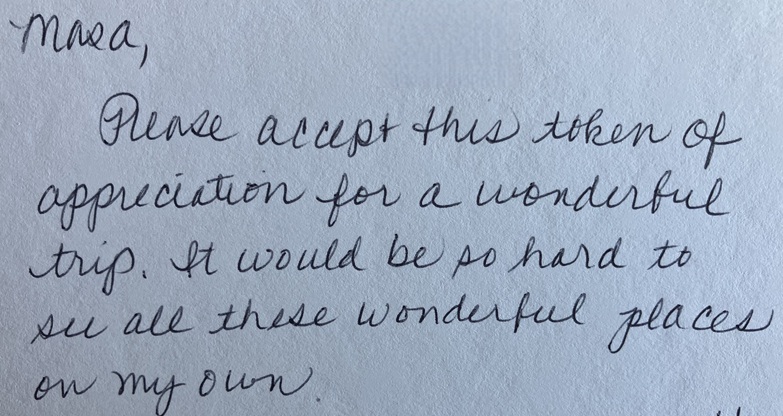 Masa,
Please accept this token of
appreciation for a wonderful
trip. It would be so hard to
see all these wonderful places
on my own.